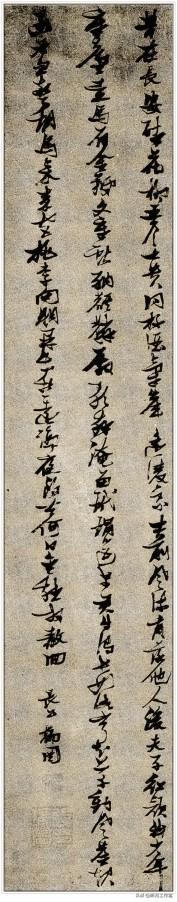 昔在長安醉花柳五侯七貴同杯酒氣岸遥凌豪士前風流肯落他人後夫子紅顔我少年
章臺走馬著金鞭文章獻納麒麟殿歌舞淹留玳瑁筵與君自謂長如此寧知草動風塵起
函谷忽驚胡馬來秦宮桃李向明開我愁遠謫夜郎去何日金雞放赦回